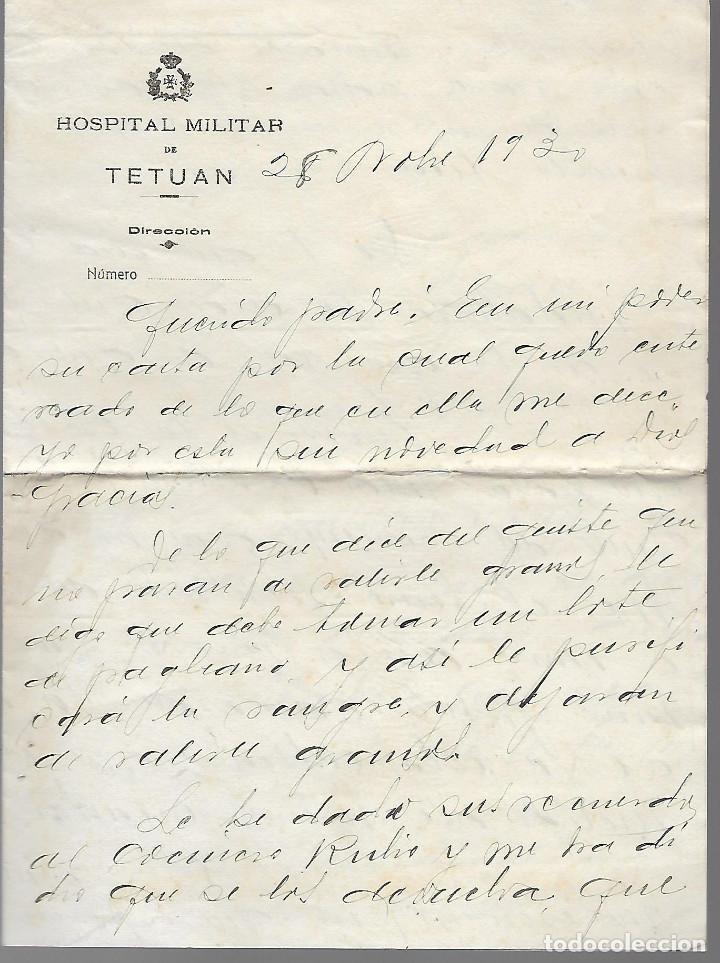 HOSPITAL MILITAR
DE
TETUAN
28 Nobre 1930
Dirección
Número
Querido padre: En mi poder
su carta por la cual quedo ente
rado de lo que en ella me dice,
yo por esta sin novedad a Dios
gracias.
De lo que dice del quiste que
no paran de salirle granos, le
digo que debe tomar un bote
de pagliano, y asi le purifi
cará la sangre, y dejaran
de salirle granos.
Le he dado sus recuerdos
al cocinero Rubio y me ha di
cho que se los devuelva, que
todocoleccion.net